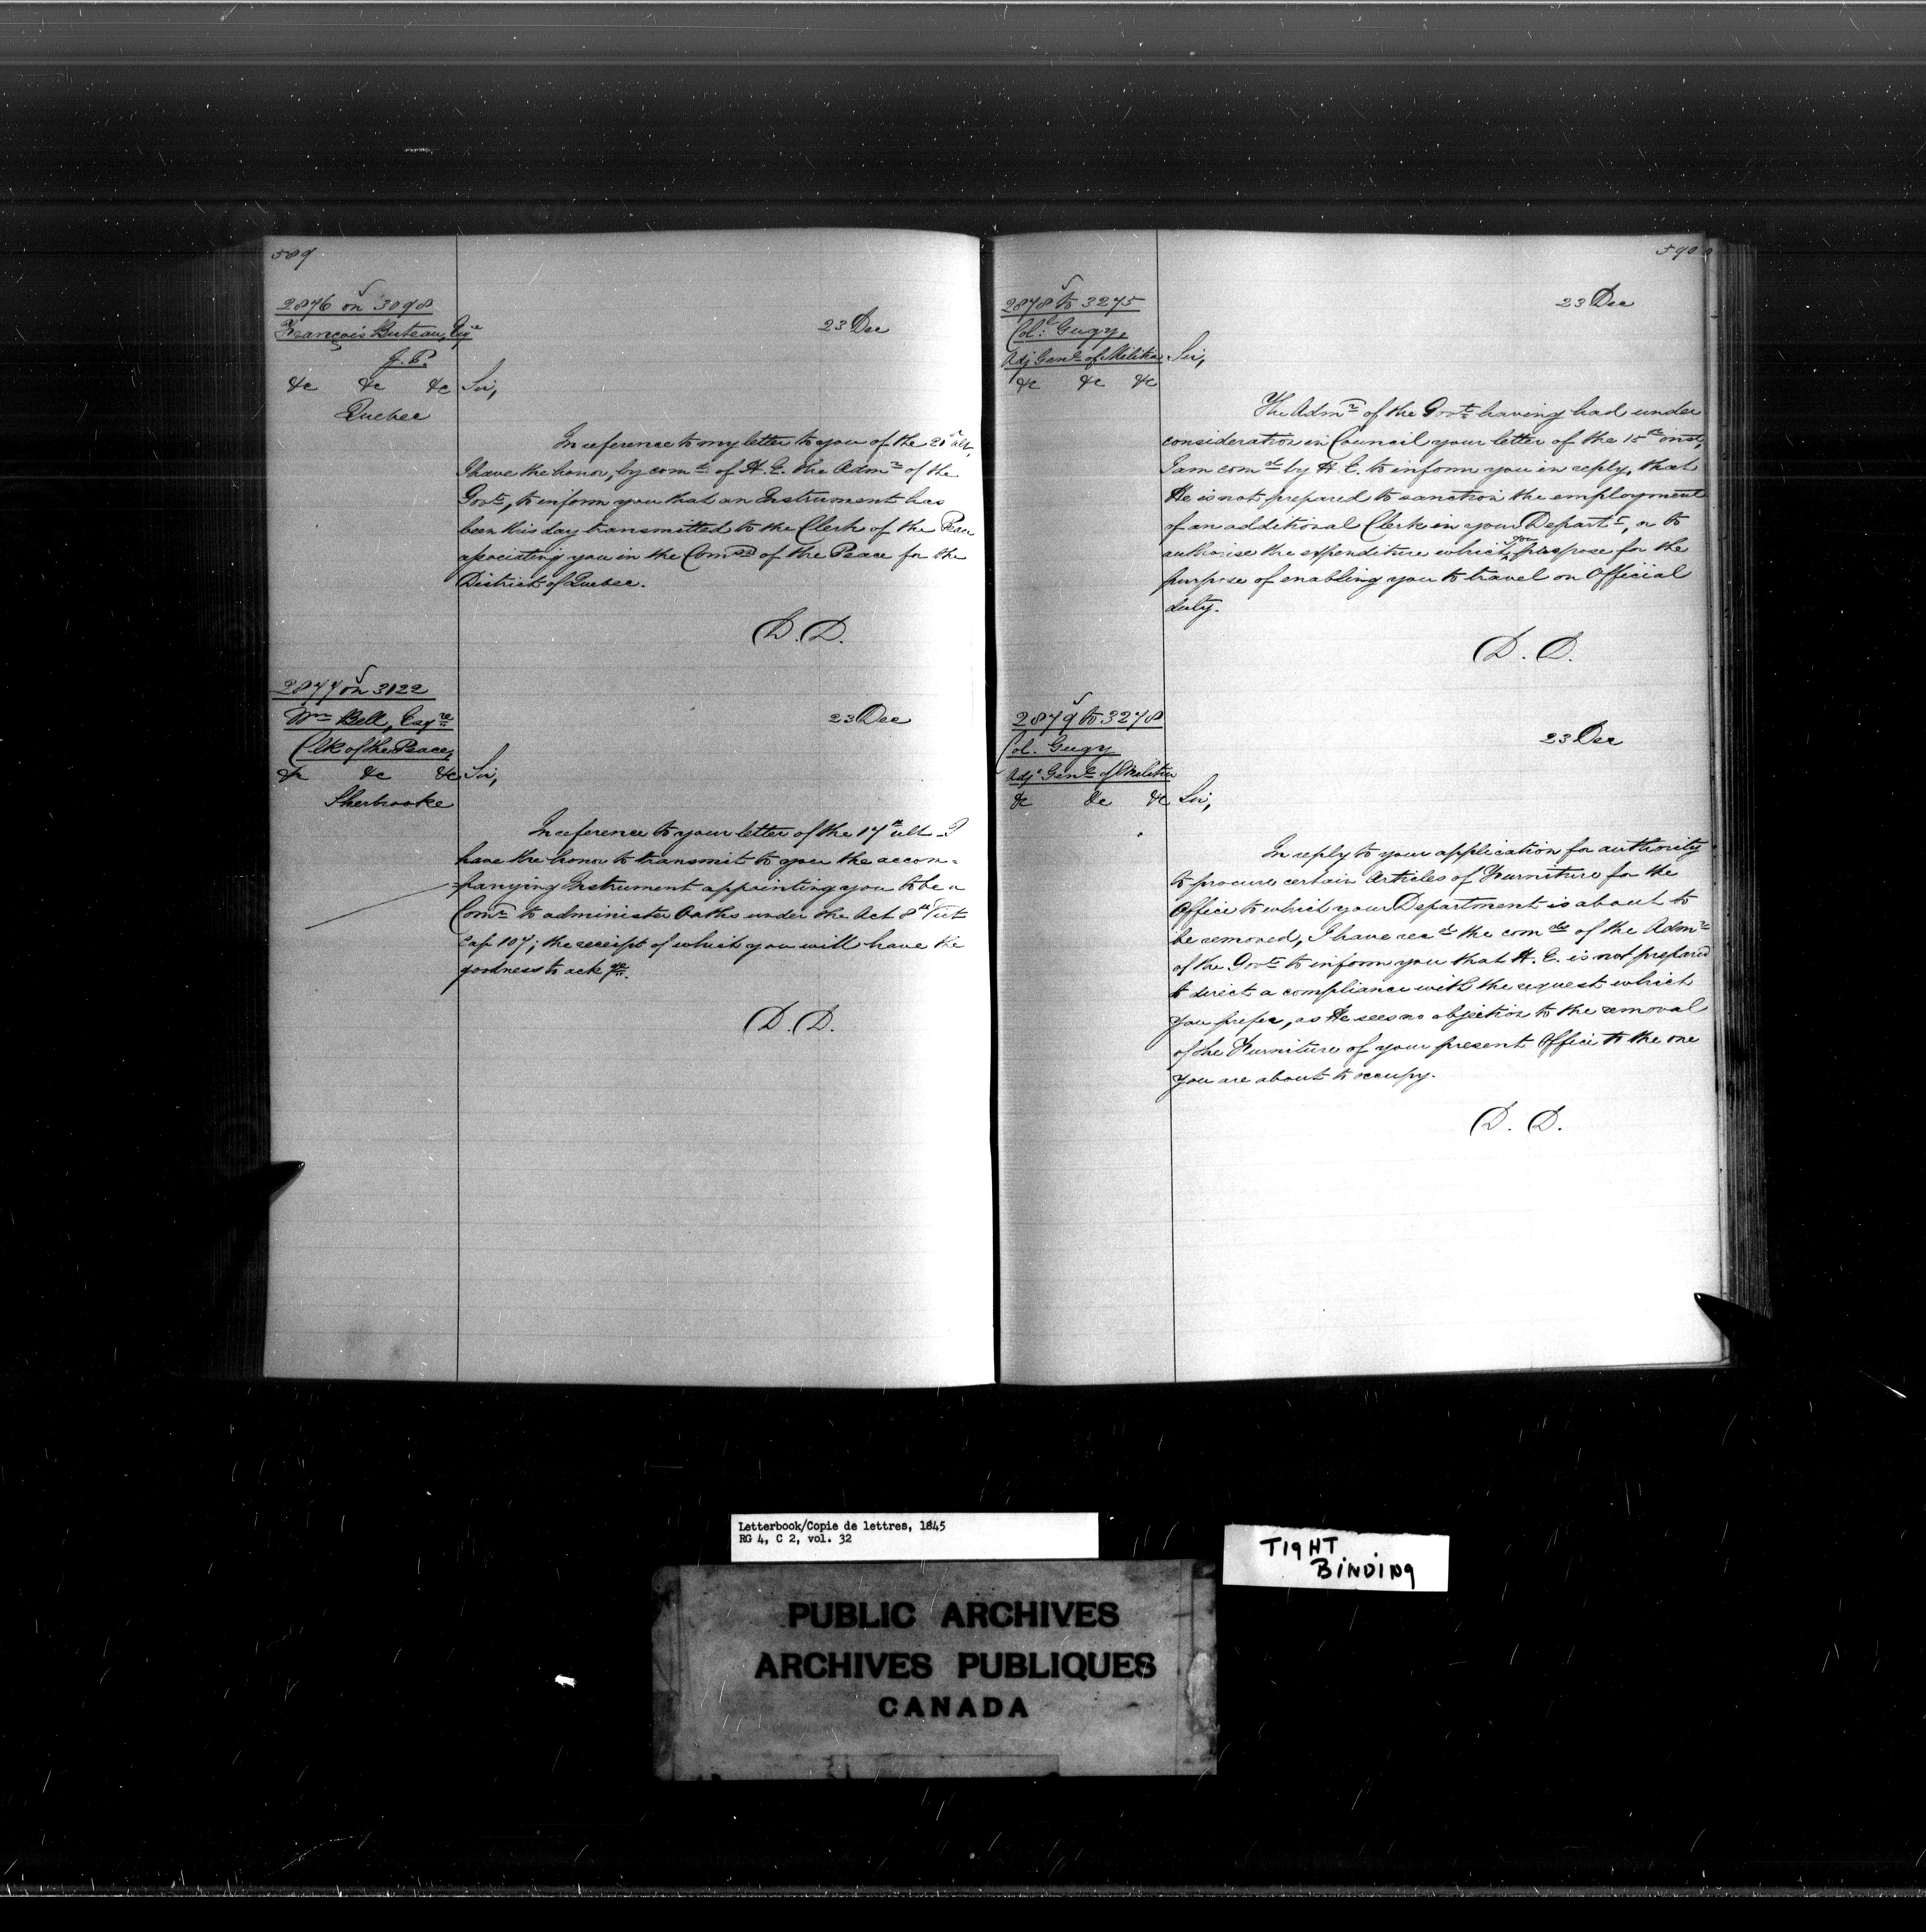 589
2876 on 3098
François Buteau, Esqre
J. P.
&c &c &c
Quebec
23 Dec
Sir,
In reference to my letter to you of the 21st ult,
I have the honor, by comd of H. E. the Admr of the
Govt, to inform you that an Instrument has
been this day transmitted to the Clerk of the Peace
associating you in the Comn of the Peace for the
District of Quebec.
D. D.
2877 on 3122
Wm Bell, Esqre
Clk of the Peace,
&c &c &c
Sherbrooke
23 Dec
Sir,
In reference to your letter of the 17th ult - I
have the honor to transmit to you the accom=
=panying Instrument appointing you to be a
Comr to administer Oaths under the Act 8th Vict
Cap 107; the receipt of which you will have the
goodness to ackge.
D. D.
590
2878 to 3275
Col: Gugy,
Adj Genl of Militia
&c &c &c
23 Dec
Sir,
The Admr of the Govt having had under
consideration in Council your letter of the 15th inst,
I am comd by H. E. to inform you in reply, that
He is not prepared to sanction the employment
of an additional Clerk in your Departt, or to
authorise the expenditure which you propose for the
purpose of enabling you to travel on Official
duty.
D. D.
2879 to 3278
Col. Gugy
Adjt Genl of Militia
&c &c &c
23 Dec
Sir,
In reply to your application for authority
to procure certain Articles of Furniture for the
Office to which your Department is about to
be removed, I have recd the comds of the Admr
of the Govt to inform you that H. E. is not prepared
to direct a compliance with the request which
you prefer, as He sees no objection to the removal
of the Furniture of your present Office to the one
you are about to occupy.
D. D.
Letterbook/Copie de lettres, 1845
RG 4, C 2, vol. 32
TIGHT
BINDING
PUBLIC ARCHIVES
ARCHIVES PUBLIQUES
CANADA